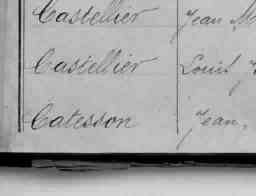 Castellier Jean M
Castellier Louis
Catesson Jean,